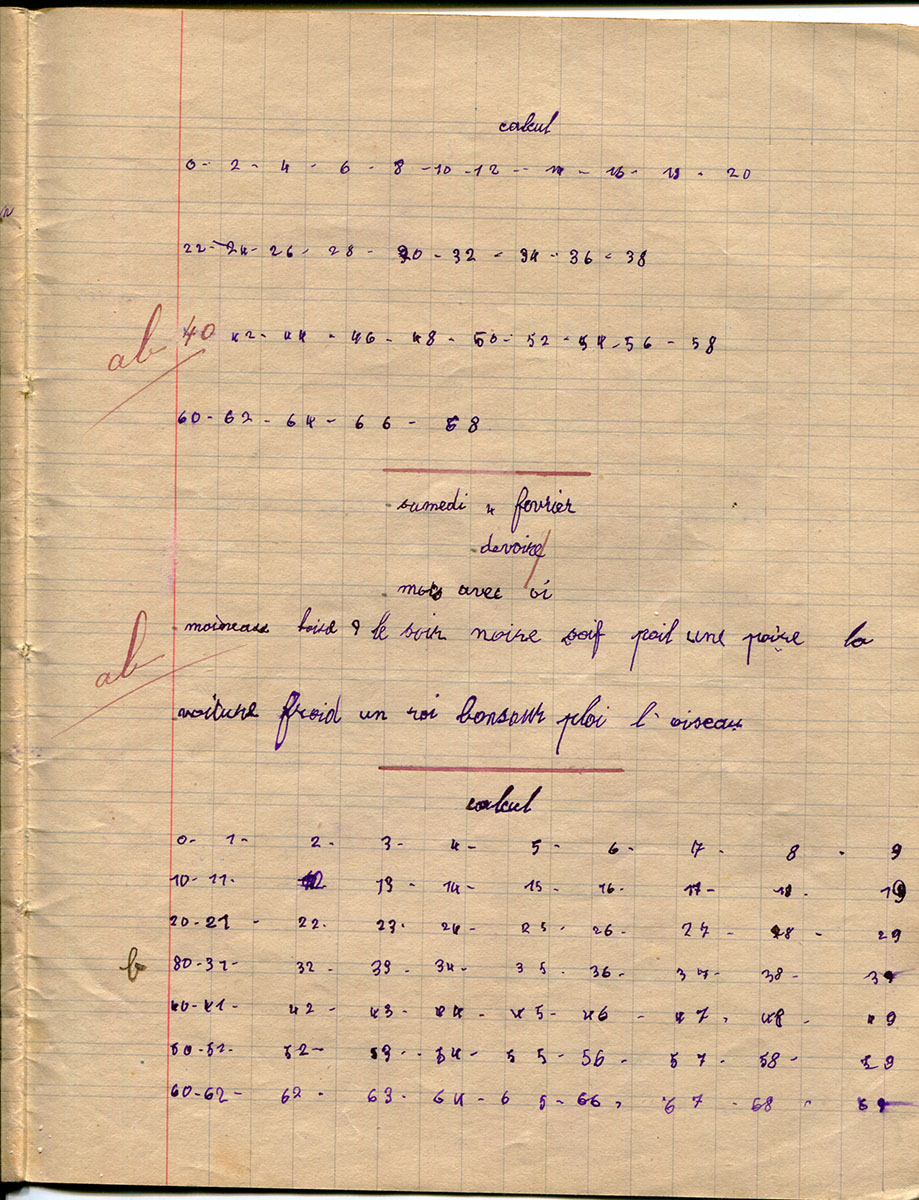 calcul
0 - 2 - 4 - 6 - 8 - 10 - 12 - 14 - 16 - 18 - 20
22 - 24 - 26 - 28 - 30 - 32 - 34 - 36 - 38
ab 40 42 - 44 - 46 - 48 - 50 - 52 - 54 - 56 - 58
60 - 62 - 64 - 66 - 68
samedi 4 fevrier
devoire
mots avec oi
ab
moineau le soir noire soif poil une poire la
voiture froid un roi bonsour ploi l'oiseau
calcul
0 - 1 - 2 - 3 - 4 - 5 - 6 - 7 - 8 - 9
10 - 11 - 12 13 - 14 - 15 - 16 - 17 - 18 - 19
20 - 21 - 22 - 23 - 24 - 25 - 26 - 27 - 28 - 29
b 30 - 31 - 32 - 33 - 34 - 35 - 36 - 37 - 38 - 39
40 - 41 - 42 - 43 - 44 - 45 - 46 - 47 - 48 - 49
50 - 51 - 52 - 53 - 54 - 55 - 56 - 57 - 58 - 59
60 - 62 - 62 - 63 - 64 - 65 - 66 - 67 - 68 - 69